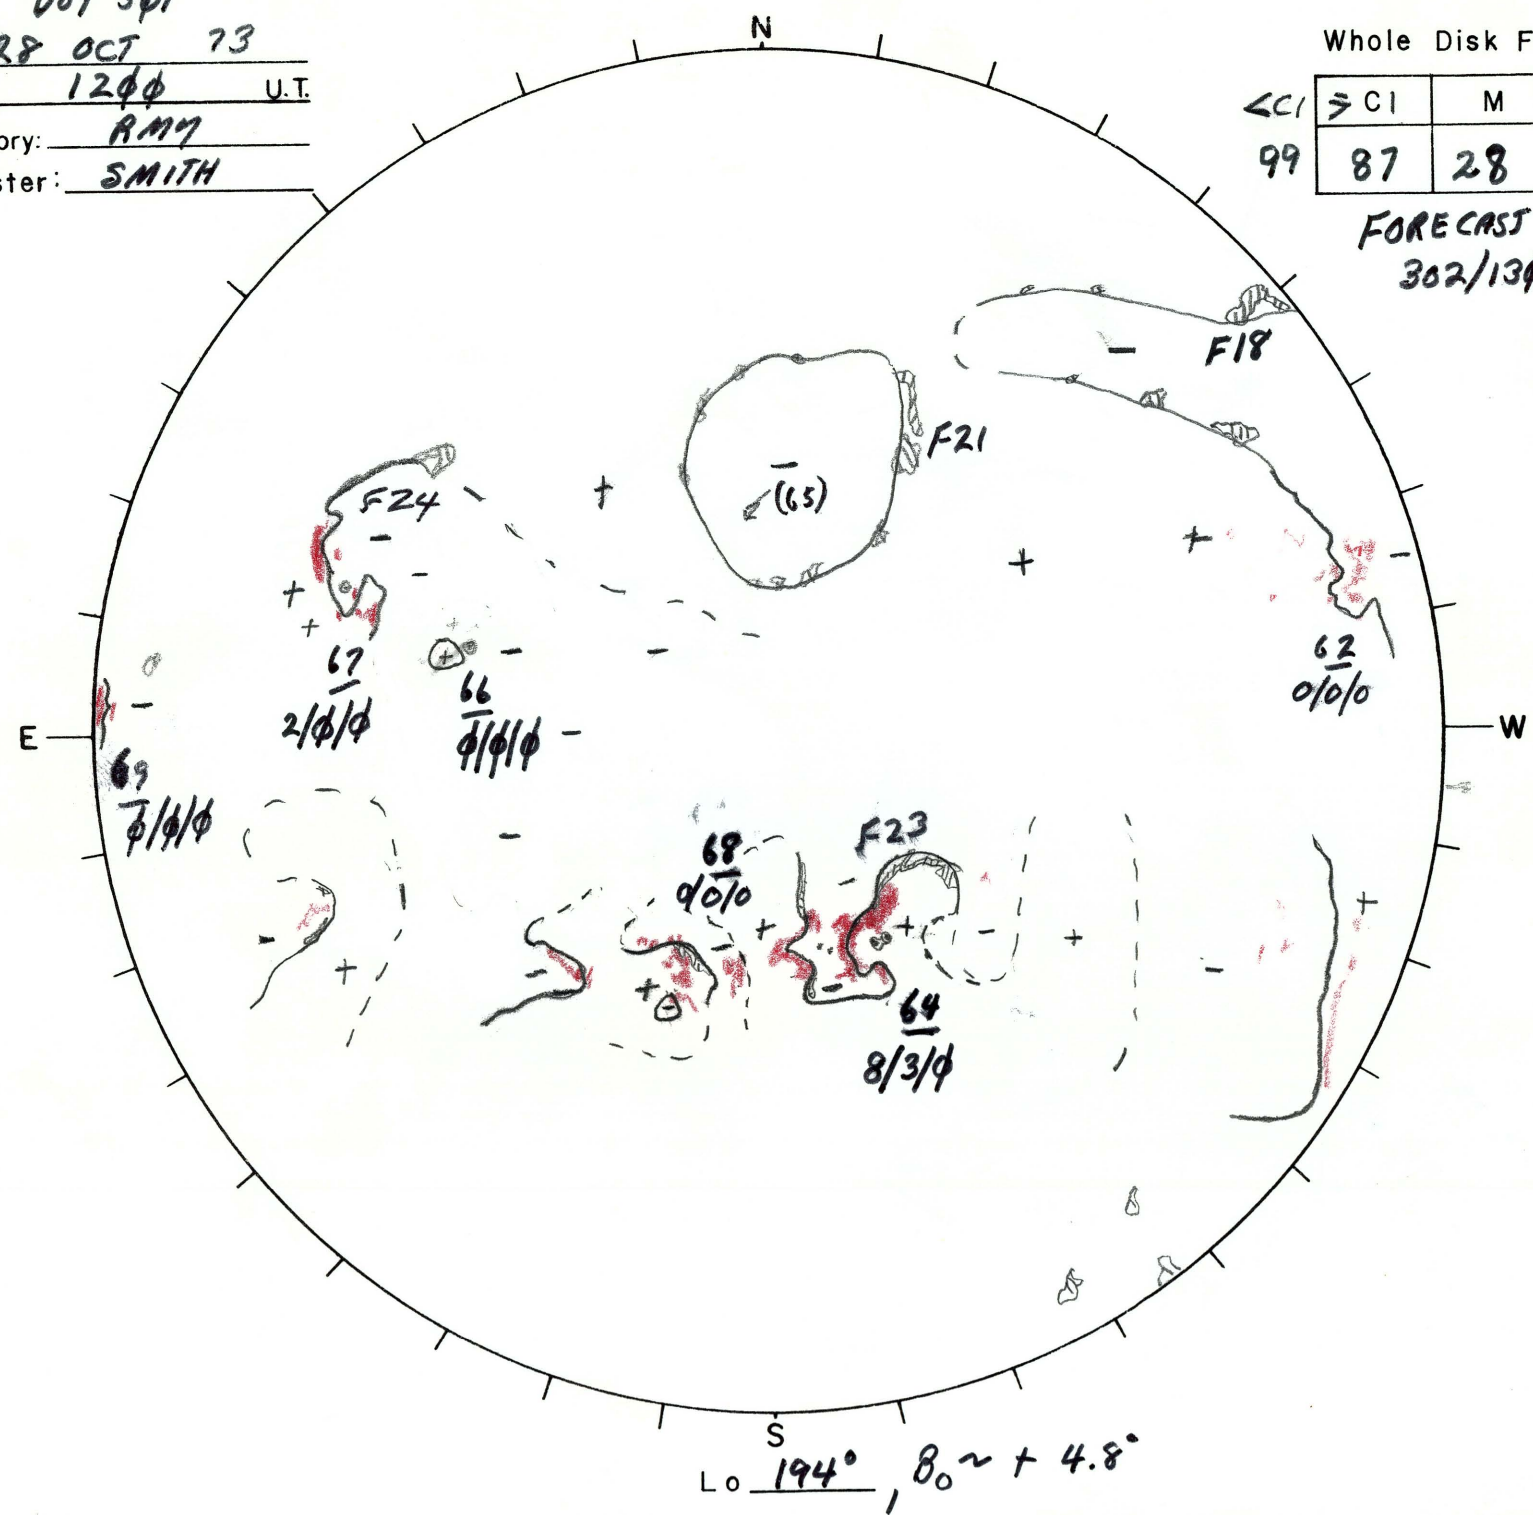 28 OCT 73
12ϕϕ U.T.
ory: RMY
ster: SMITH
N
Whole Disk F
<C1 ≥ C1 M
99 87 28
FORECAST
302/13ϕ
F18
F21
(65)
F24
67
2/ϕ/ϕ
66
ϕ/ϕ/ϕ
62
0/0/0
E
W
69
ϕ/ϕ/ϕ
68
0/0/0
F23
64
8/3/ϕ
S
Lo 194°, Bo ~ + 4.8°